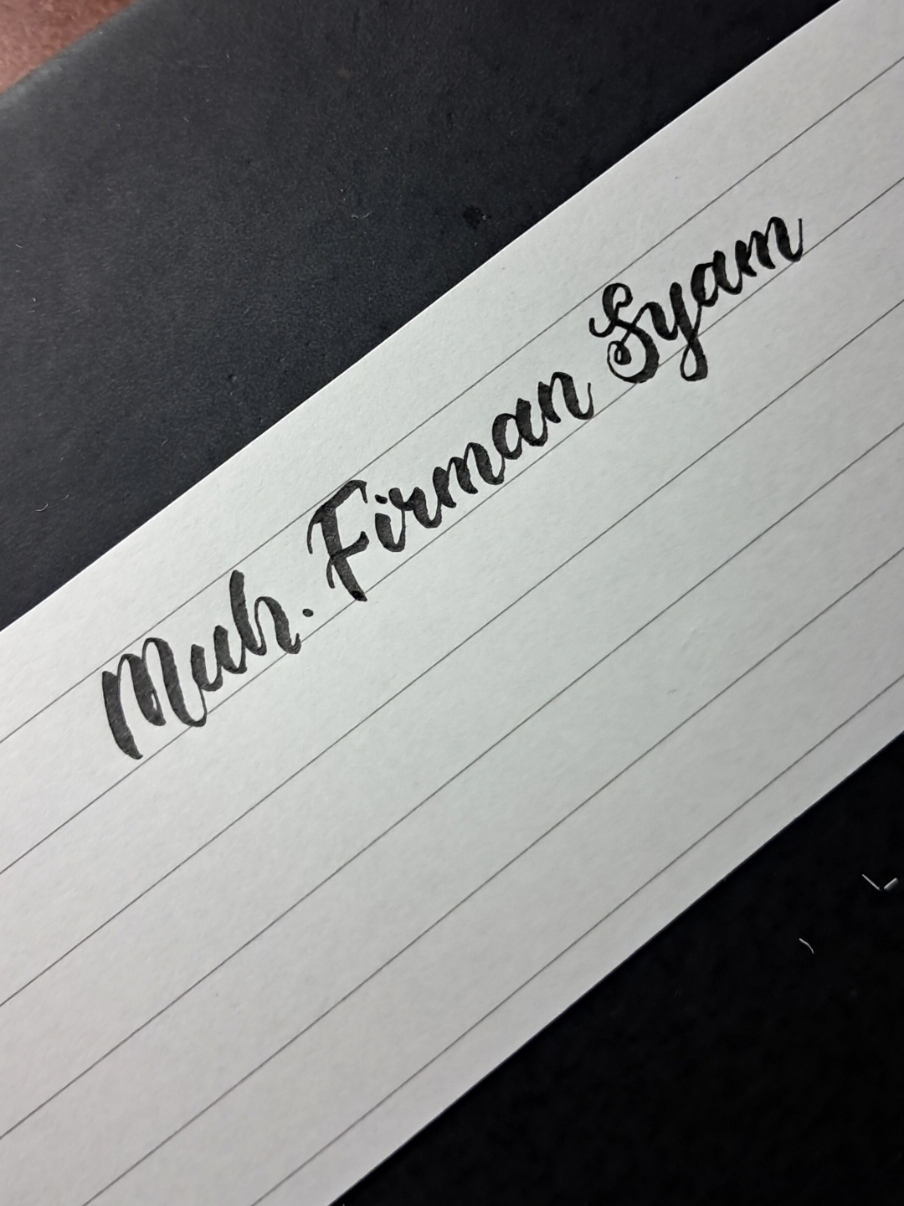 Muh. Firman Syam